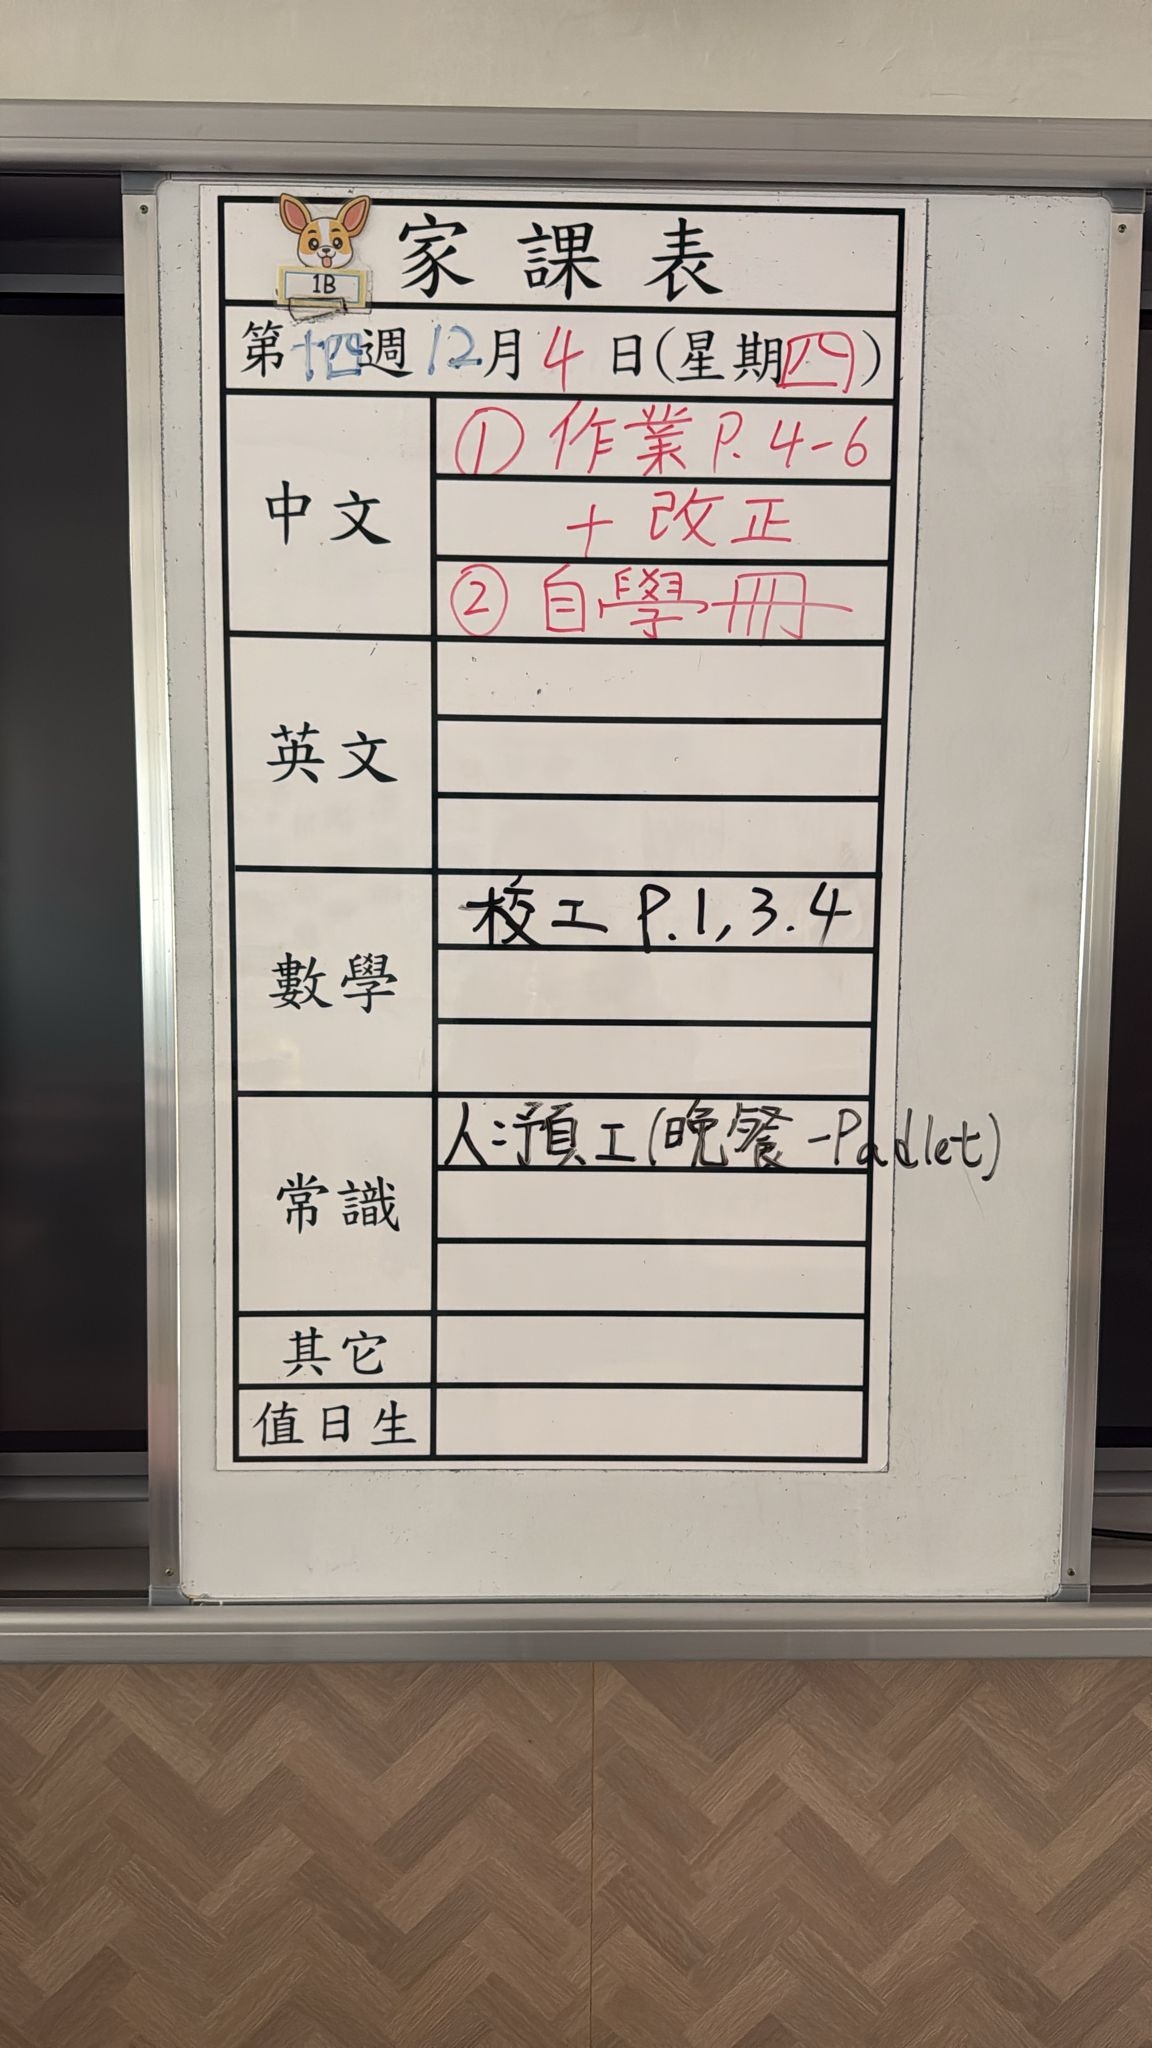 1B
家課表
第十四週12月4日(星期四)
中文
① 作業 P. 4-6
+ 改正
② 自學冊
英文
數學
校工 P.1,3.4
常識
人:預工(晚餐-Padlet)
其它
值日生